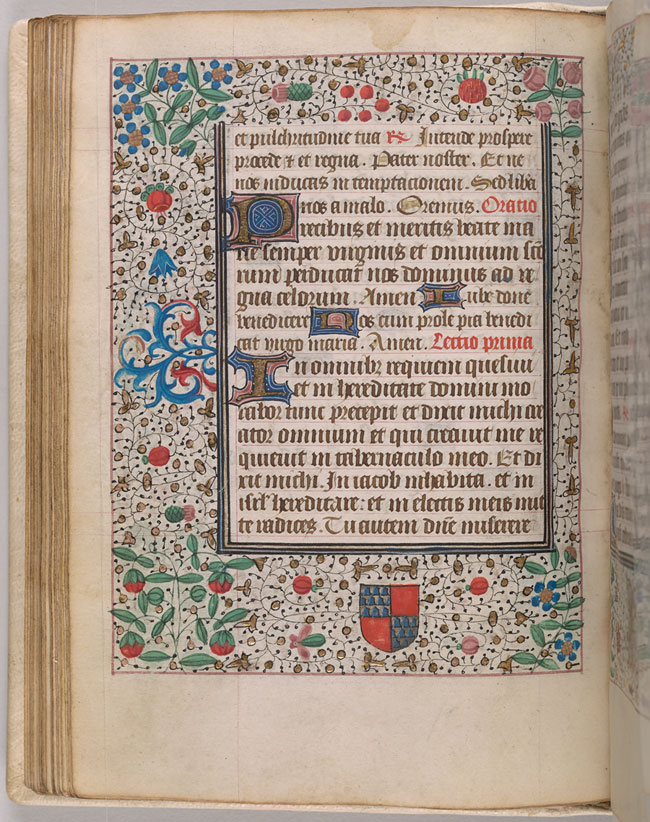 et pulchritudine tua R̃. Intende prospere
procede ⁊ et regna. Pater noster. Et ne
nos inducas in temptacionem. Sed libā
nos a malo. Oremus. Oratio
Precibus et meritis beate ma
rie semper virginis et omnium scō
rum perducat nos dominus ad re
gna celorum. Amen Iube dōne
benedicere Nos cum prole pia benedi
cat virgo maria. Amen. Lectio prima
In omnibꝫ requiem quesiui
et in hereditate domini mo
rabor tunc precepit et dixit michi cre
ator omnium et qui creauit me re
quieuit in tabernaculo meo. Et di
xit michi. In iacob inhabita. et in
isrł hereditare: et in electis meis mit
te radices. Tu autem dn̄e miserere